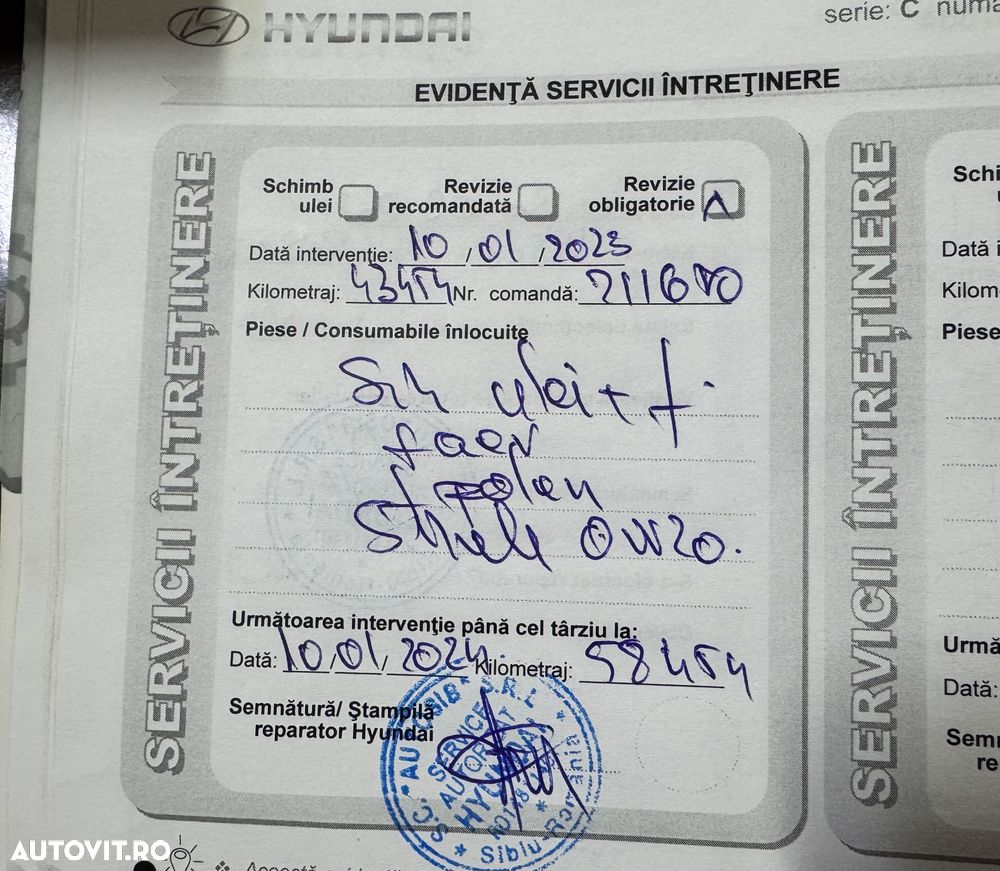 HYUNDAI
serie: C numă
EVIDENŢĂ SERVICII ÎNTREŢINERE
SERVICII ÎNTREŢINERE
Schimb ulei
Revizie recomandată
Revizie obligatorie
Dată intervenţie: 10 / 01 / 2023
Kilometraj: 43454 Nr. comandă:
Piese / Consumabile înlocuite
Sch ulei + f.
f aer
f polen
0W20.
Următoarea intervenţie până cel târziu la:
Dată: 10 / 01 / 2024 Kilometraj: 58454
Semnătură/ Ştampilă
reparator Hyundai
S.C. * AUTOSIB * S.R.L.
SERVICE
AUTORIZAT
HYUNDAI
* Sibiu-România *
SERVICII ÎNTREŢINERE
Schi
Dată i
Kilom
Piese
Urmă
Dată:
Semn
re
AUTOVIT.RO